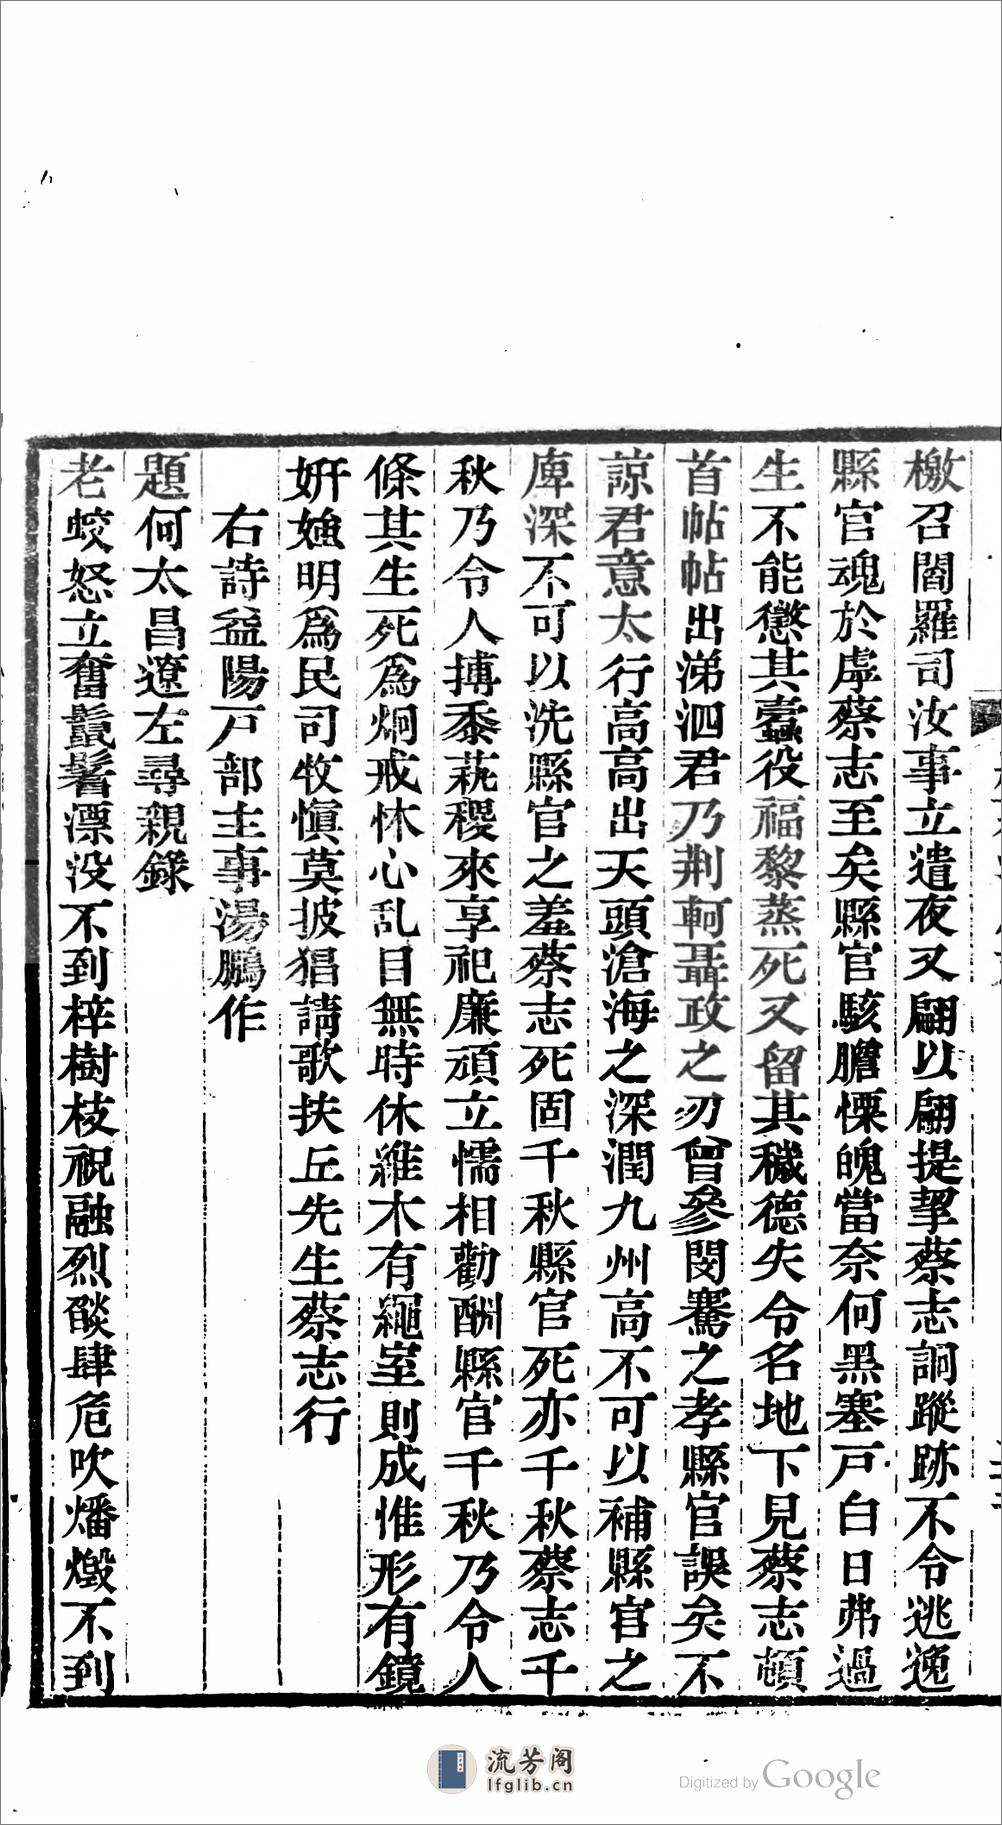 檄召閻羅司汝事立遣夜叉翩以翩提挈蔡志詗蹤跡不令逃逸
縣官魂於虖蔡志至矣縣官駭膽慄魄當奈何黑塞戸白日弗過
生不能懲其蠹役福黎蒸死又留其穢德失令名地下見蔡志頓
首帖帖出涕泗君乃荆軻聶政之刃曾參閔騫之孝縣官誤矣不
諒君意太行高高出天頭滄海之深潤九州高不可以補縣官之
庳深不可以洗縣官之羞蔡志死固千秋縣官死亦千秋蔡志千
秋乃令人搏黍蓺稷來享祀廉頑立懦相勸酬縣官千秋乃令人
條其生死爲炯戒怵心乱目無時休維木有繩室則成惟形有鏡
妍媸明爲民司牧慎莫披猖請歌扶丘先生蔡志行
右詩益陽戸部主事湯鵬作
題何太昌遼左尋親錄
老蛟怒立奮鬣鬐漂没不到梓樹枝祝融烈燄肆危吹燔燬不到
流芳阁
lfglib.cn
Digitized by Google